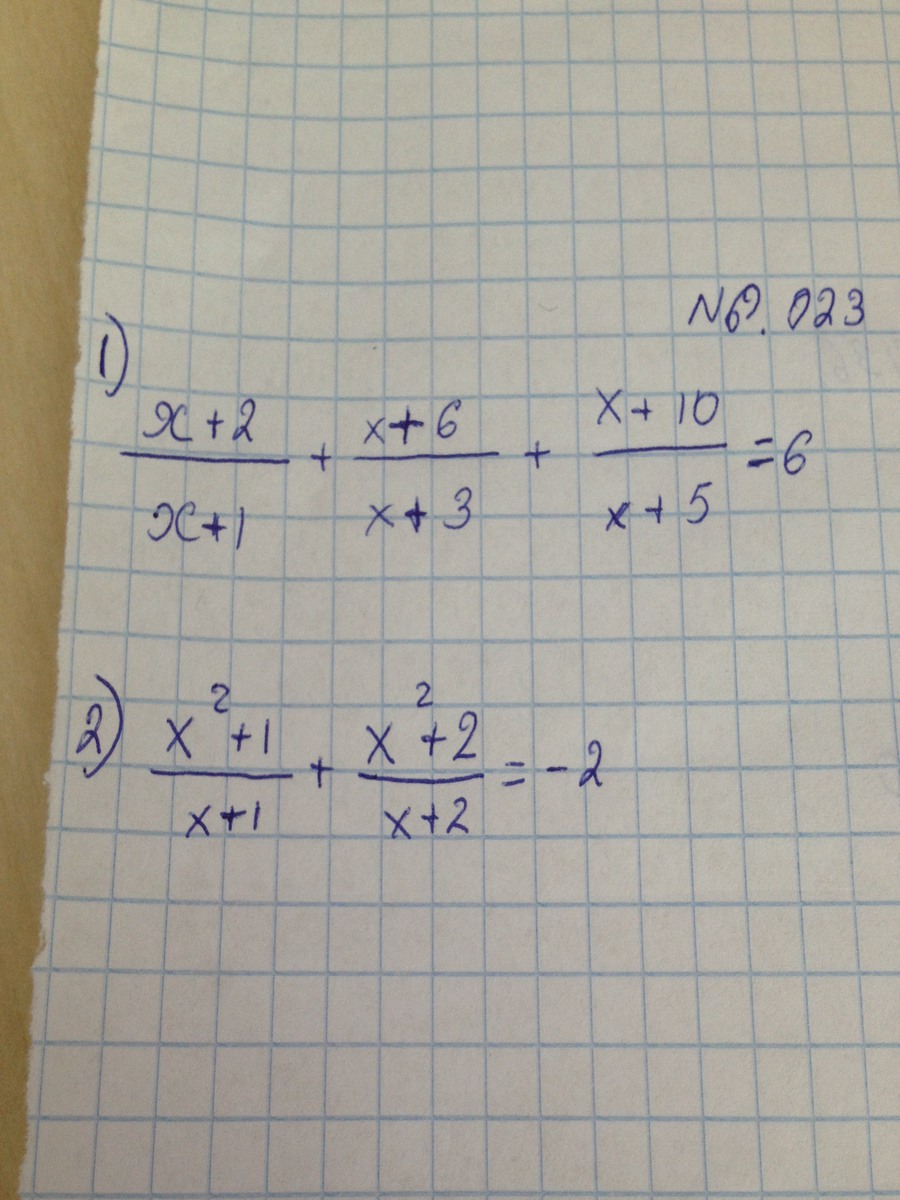 №. 023
1)
x+2/x+1 + x+6/x+3 + x+10/x+5 = 6
2) x²+1/x+1 + x²+2/x+2 = -2